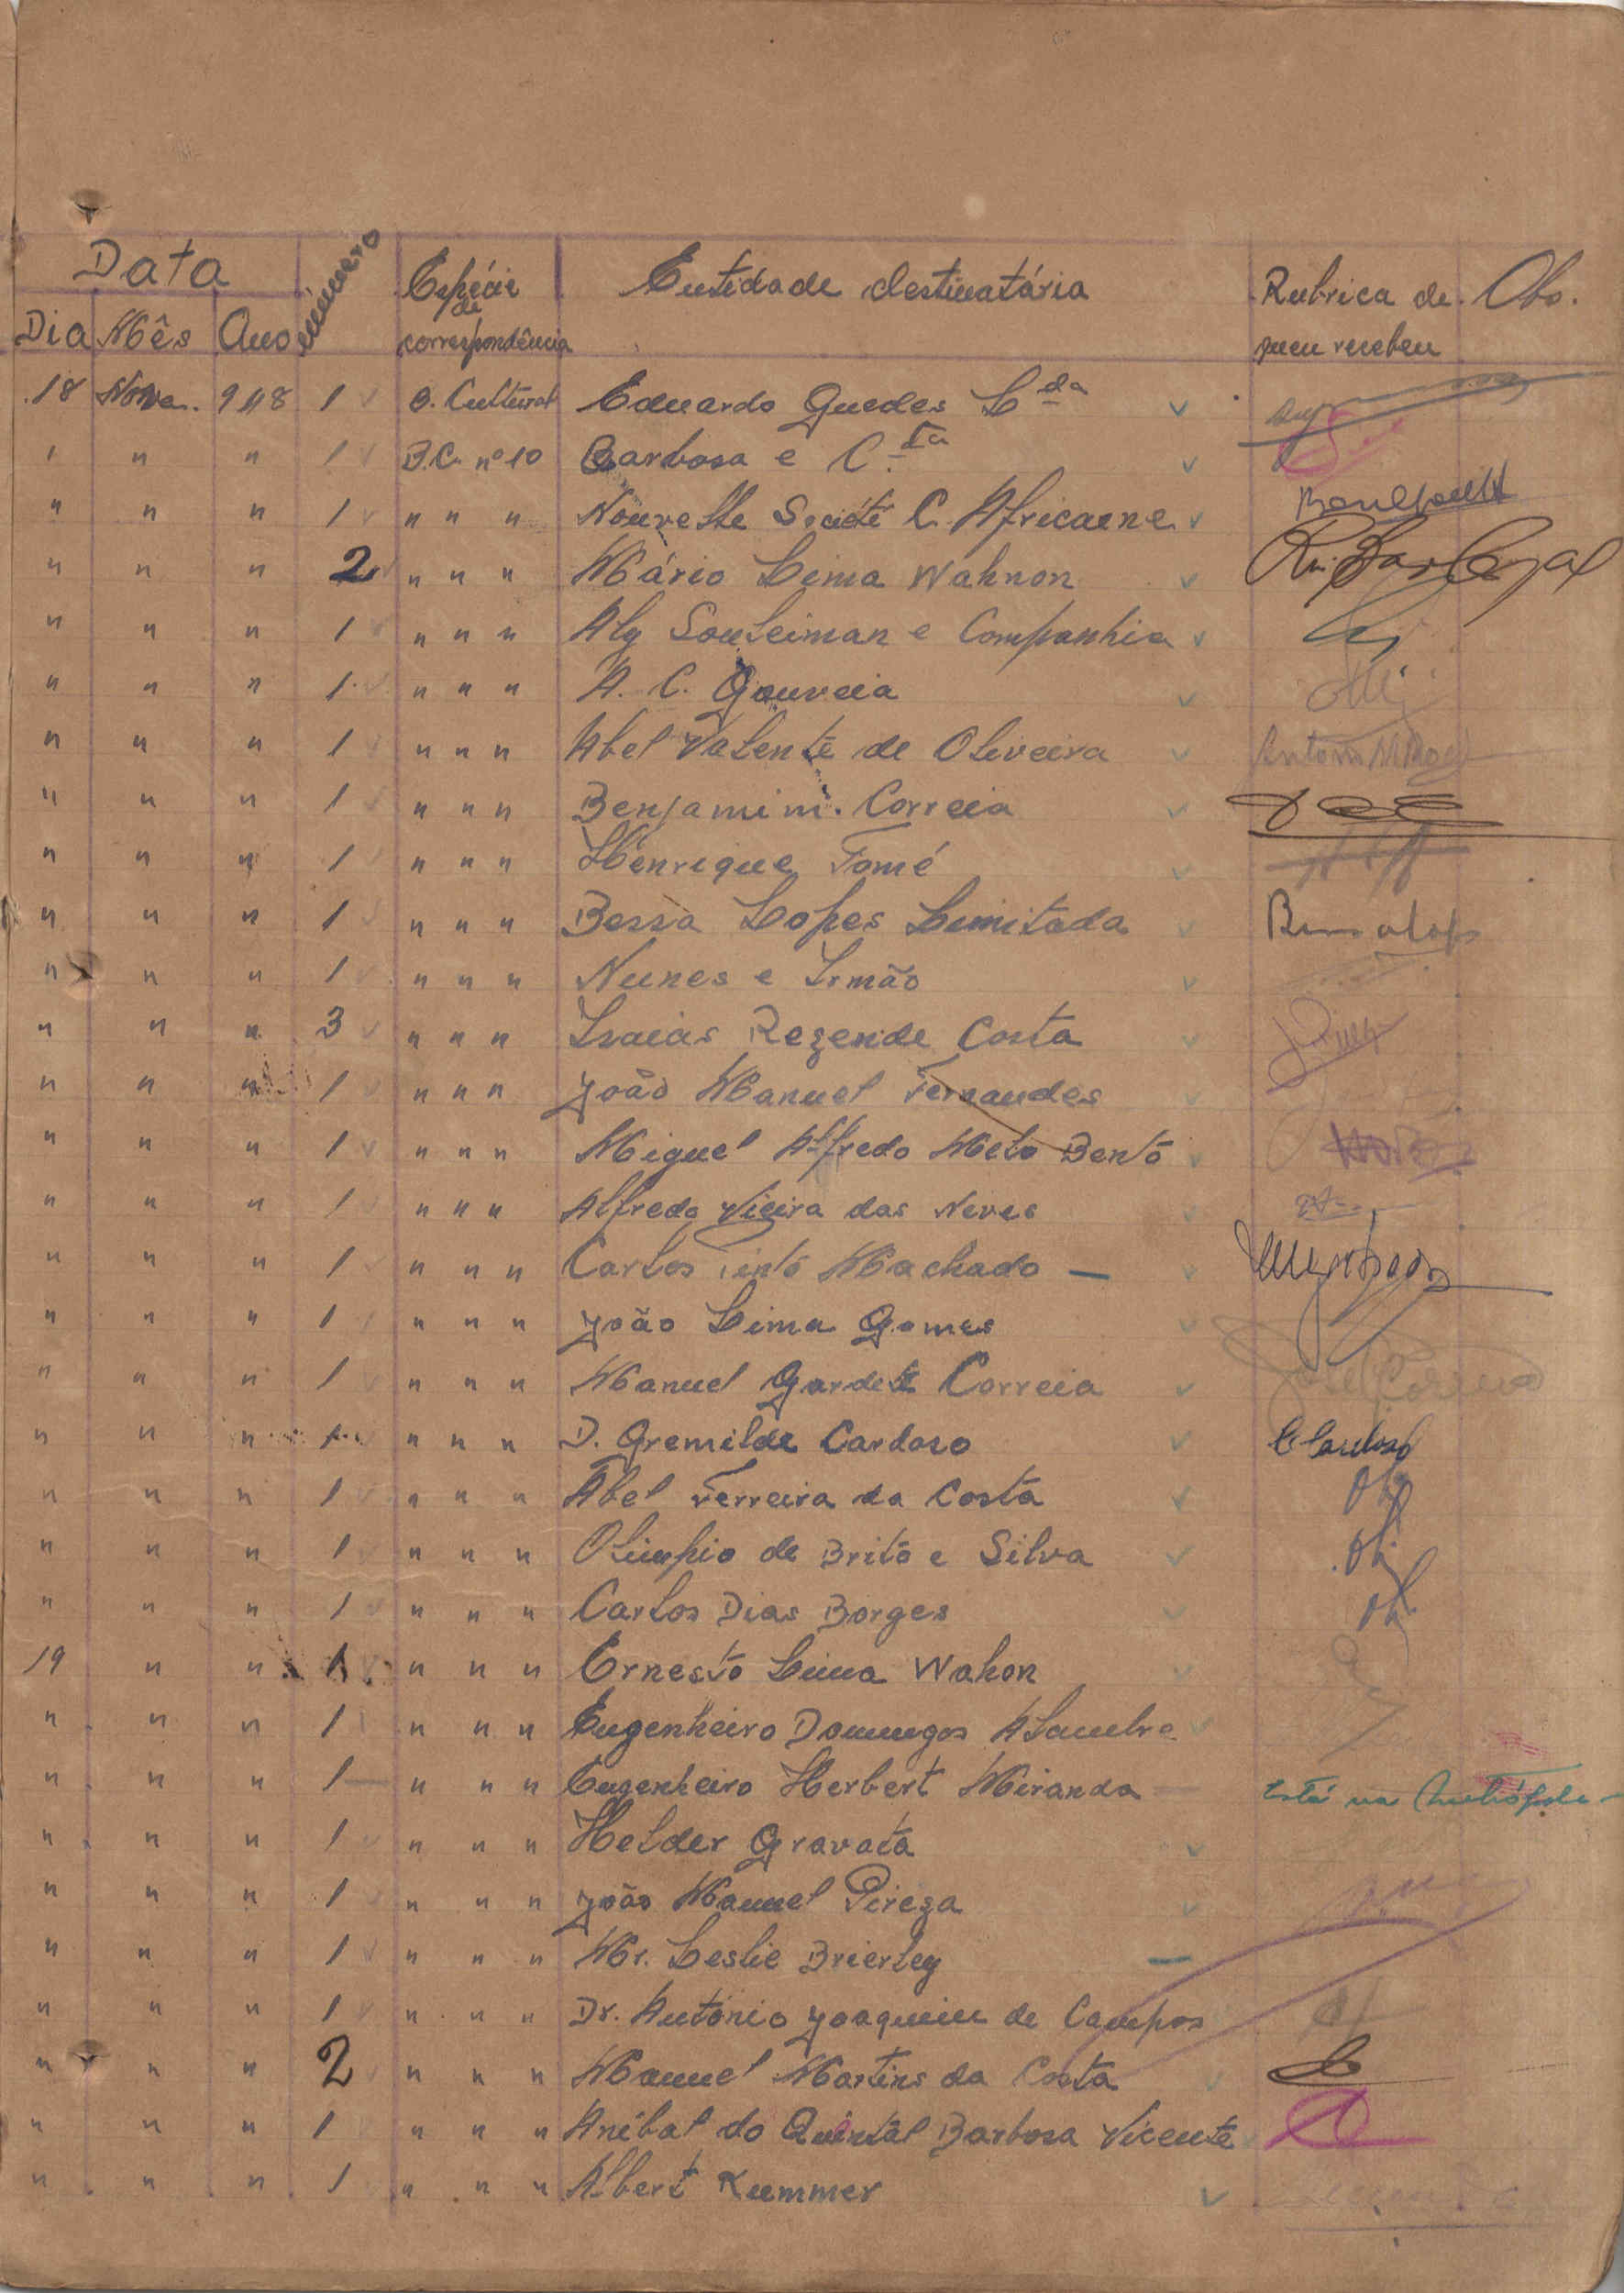 Data número Espécie de correspondência Entidade destinatária Rubrica de quem recebeu Obs.
Dia Mês Ano
18 Nove. 948 1 B. Cultural Eduardo Guedes L.da
" " " 1 B.C. nº 10 Barbosa e C.ta
" " " 1 " " " Nouvelle Société C. Africaene
" " " 2 " " " Mário Lima Wahnon
" " " 1 " " " Aly Souleiman e Companhia
" " " 1 " " " A. C. Gouveia
" " " 1 " " " Abel Valente de Oliveira
" " " 1 " " " Benjamim. Correia
" " " 1 " " " Henrique Tomé
" " " 1 " " " Bessa Lopes Limitada
" " " 1 " " " Nunes e Irmão
" " " 3 " " " Isaias Rezende Costa
" " " 1 " " " João Manuel Fernandes
" " " 1 " " " Miguel Alfredo Melo Bento
" " " 1 " " " Alfredo Vieira das Neves
" " " 1 " " " Carlos Pinto Machado —
" " " 1 " " " João Lima Gomes
" " " 1 " " " Manuel Correia
" " " 1 " " " D. Gremilde Cardoso C Cardoso
" " " 1 " " " Abel Ferreira da Costa
" " " 1 " " " Olimpio de Brito e Silva
" " " 1 " " " Carlos Dias Borges
19 " " 1 " " " Ernesto Lima Wahon
" " " 1 " " " Engenheiro Domingos Alambre
" " " 1 " " " Engenheiro Herbert Miranda — Está na Metrópole —
" " " 1 " " " Helder Gravata
" " " 1 " " " João Manuel Pireza
" " " 1 " " " Mr. Leslie Brierley —
" " " 1 " " " Dr. António Joaquim de Campos
" " " 2 " " " Manuel Martins da Costa
" " " 1 " " " Aníbal do Quintal Barbosa Vicente
" " " 1 " " " Albert Kummer